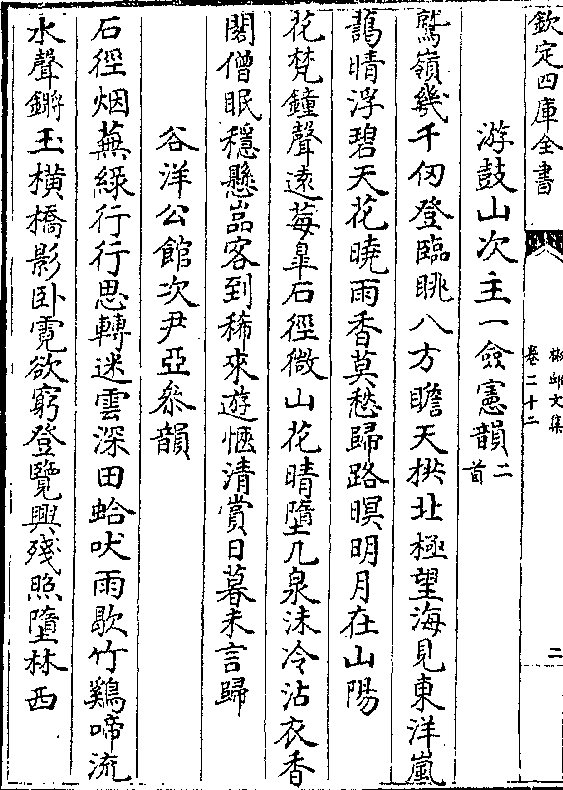 欽定四庫全書
卷二十二
二
游鼓山次主一僉憲韻二首
鷲嶺幾千仞登臨眺八方瞻天拱北極望海見東洋嵐
靄晴浮碧天花曉雨香莫愁歸路暝明月在山陽
花梵鐘聲遠莓牆石徑微山花晴墮几泉沫冷沾衣香
閣僧眠穩懸嵓客到稀來遊愜清賞日暮未言歸
谷洋公館次尹亞叅韻
石徑烟蕪綠行行思轉迷雲深田蛤吠雨歇竹鷄啼流
水聲鏘玉橫橋影臥霓欲窮登覽興殘照墮林西